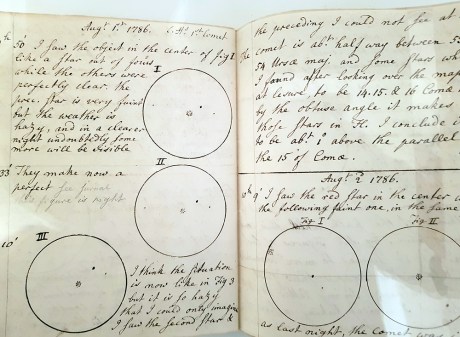 Augt. 1st. 1786. 1st Comet
50' I saw the object in the center of fig I
like a star out of focus
while the others were
perfectly clear. the
prec. star is very faint
but the weather is
hazy, and in a clearer
night undoubtedly some
more will be visible
I
33' They make now a
perfect
figure is right
II
10'
III
I think the situation
is now like in Fig 3
but it is so hazy
that I could only imagine
I saw the second star &
the preceding I could not see at
The comet is abt. half way between 53
54 Ursæ maj. and some stars wh
I found after looking over the map
at lesure, to be 14. 15. & 16 Comæ
by the obtuse angle it makes
those stars in I conclude i
to be abt. 1° above the parallel
the 15 of Comæ.
Augt. 2d 1786.
9' I saw the red star in the center o
the following faint one, in the same
Fig I
Fig II
as last night, the Comet was i